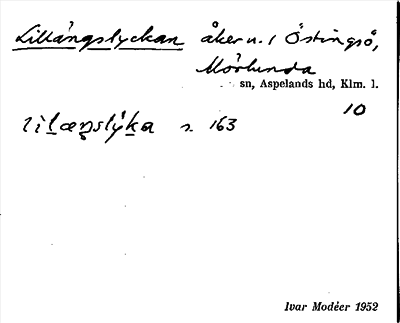 Lillängslyckan åker n. 1 Östingsö,
Mörlunda
sn, Aspelands hd, Klm. l.
10
lilæŋslýka s. 163
Ivar Modéer 1952